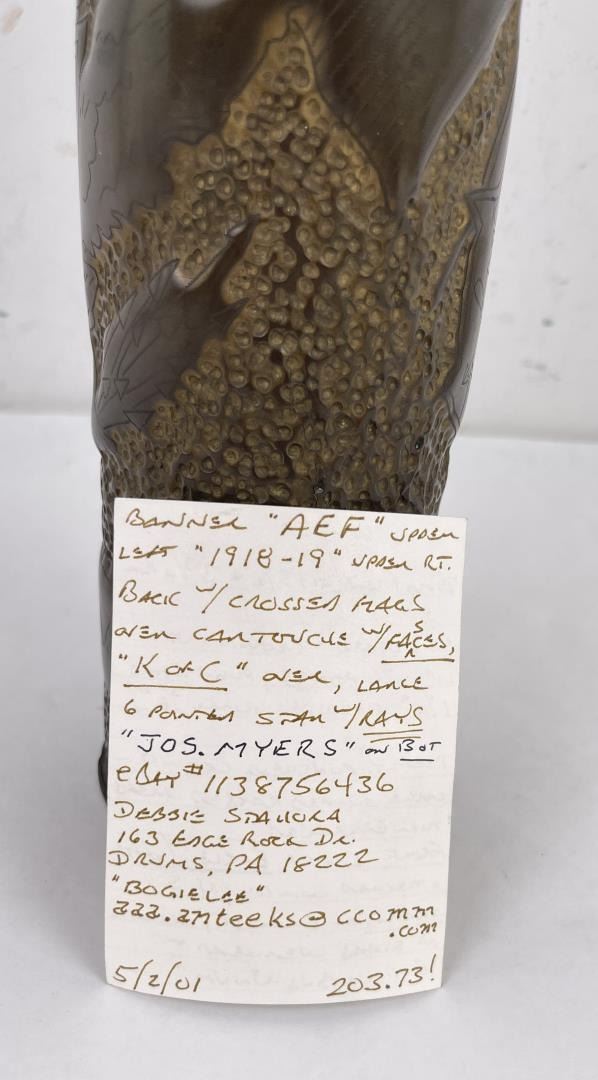 BANNER "AEF" UPPER
LEFT "1918-19" UPPER RT.
BACK W/ CROSSED FLAGS
OVER CARTOUCHE W/ FASCES,
"K OF C" OVER, LARGE
6 POINTED STAR W/ RAYS
"JOS. MYERS" ON BOT
eBAY # 1138756436
DEBBIE
163 EDGE ROCK DR.
DRUMS, PA 18222
"BOGIELEE"
aaa.anteeks@ccomm
.com
5/2/01 203.73!